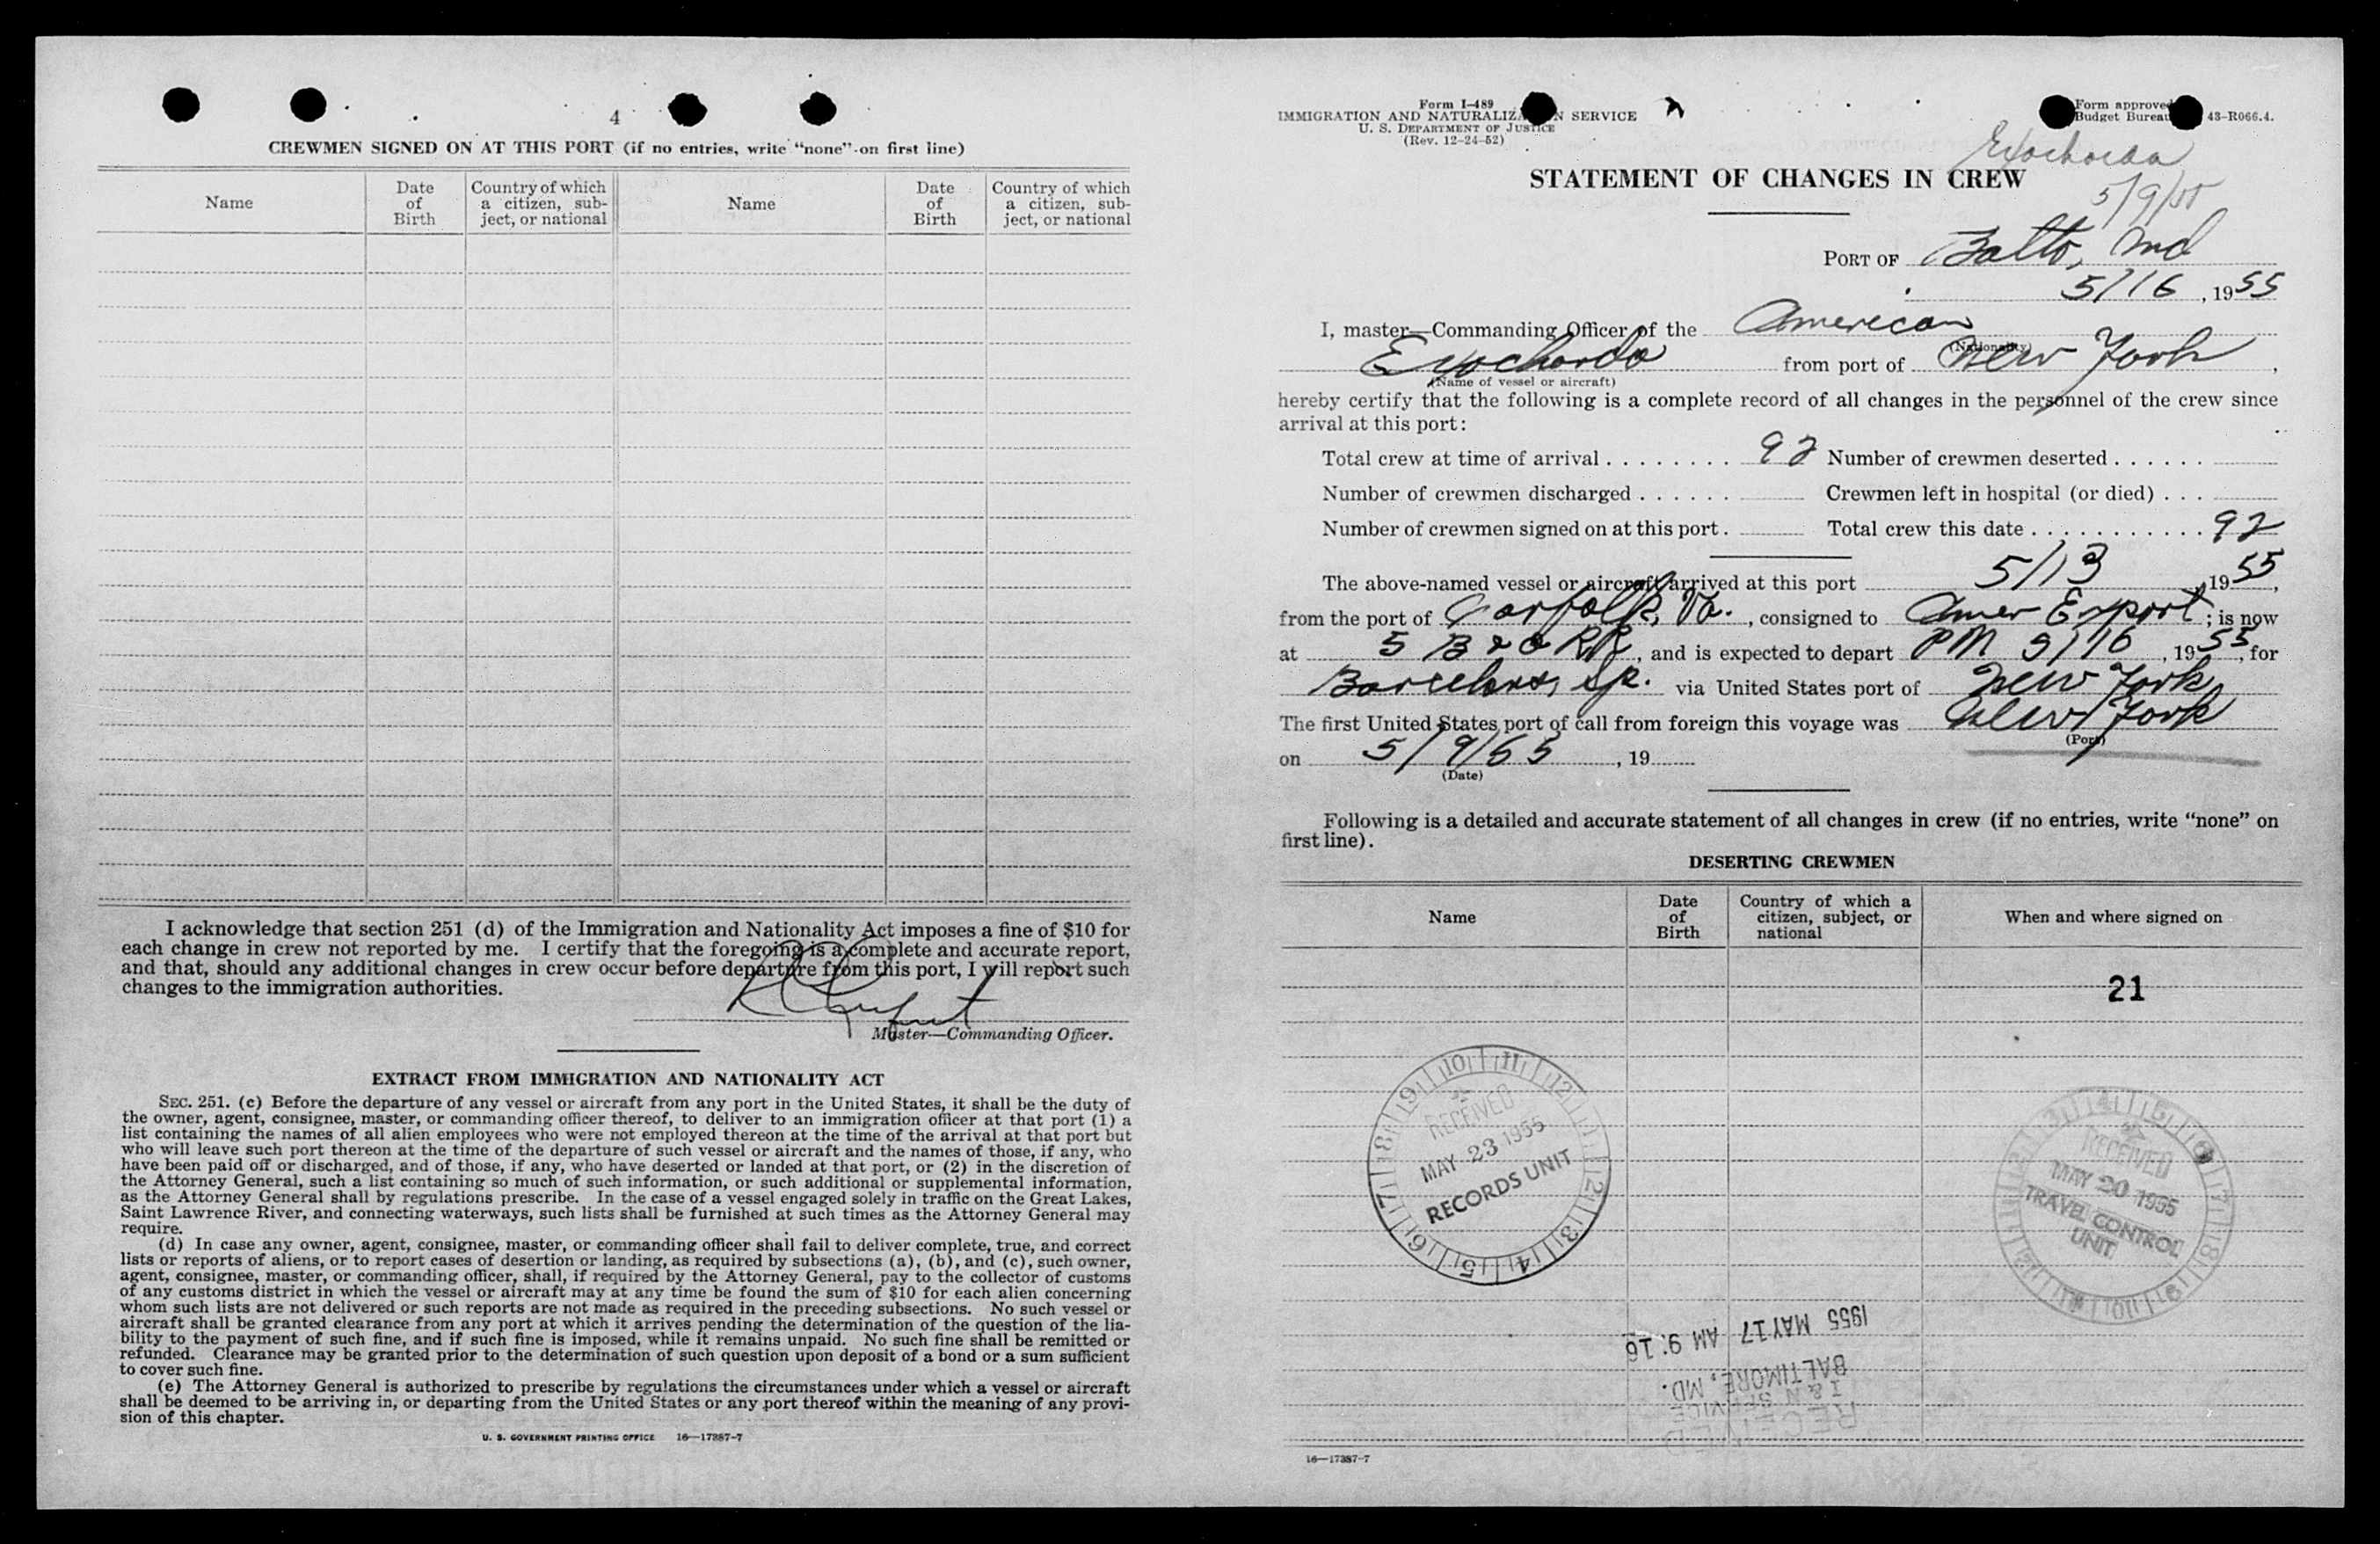 4
CREWMEN SIGNED ON AT THIS PORT (if no entries, write "none" on first line)
Name
Date of Birth
Country of which a citizen, subject, or national
Name
Date of Birth
Country of which a citizen, subject, or national
I acknowledge that section 251 (d) of the Immigration and Nationality Act imposes a fine of $10 for
each change in crew not reported by me. I certify that the foregoing is a complete and accurate report,
and that, should any additional changes in crew occur before departure from this port, I will report such
changes to the immigration authorities.
Master—Commanding Officer.
EXTRACT FROM IMMIGRATION AND NATIONALITY ACT
SEC. 251. (c) Before the departure of any vessel or aircraft from any port in the United States, it shall be the duty of
the owner, agent, consignee, master, or commanding officer thereof, to deliver to an immigration officer at that port (1) a
list containing the names of all alien employees who were not employed thereon at the time of the arrival at that port but
who will leave such port thereon at the time of the departure of such vessel or aircraft and the names of those, if any, who
have been paid off or discharged, and of those, if any, who have deserted or landed at that port, or (2) in the discretion of
the Attorney General, such a list containing so much of such information, or such additional or supplemental information,
as the Attorney General shall by regulations prescribe. In the case of a vessel engaged solely in traffic on the Great Lakes,
Saint Lawrence River, and connecting waterways, such lists shall be furnished at such times as the Attorney General may
require.
(d) In case any owner, agent, consignee, master, or commanding officer shall fail to deliver complete, true, and correct
lists or reports of aliens, or to report cases of desertion or landing, as required by subsections (a), (b), and (c), such owner,
agent, consignee, master, or commanding officer, shall, if required by the Attorney General, pay to the collector of customs
of any customs district in which the vessel or aircraft may at any time be found the sum of $10 for each alien concerning
whom such lists are not delivered or such reports are not made as required in the preceding subsections. No such vessel or
aircraft shall be granted clearance from any port at which it arrives pending the determination of the question of the lia-
bility to the payment of such fine, and if such fine is imposed, while it remains unpaid. No such fine shall be remitted or
refunded. Clearance may be granted prior to the determination of such question upon deposit of a bond or a sum sufficient
to cover such fine.
(e) The Attorney General is authorized to prescribe by regulations the circumstances under which a vessel or aircraft
shall be deemed to be arriving in, or departing from the United States or any port thereof within the meaning of any provi-
sion of this chapter.
U. S. GOVERNMENT PRINTING OFFICE 16—17387-7
Form I-489
IMMIGRATION AND NATURALIZATION SERVICE
U. S. DEPARTMENT OF JUSTICE
(Rev. 12-24-52)
Form approved
Budget Bureau 43-R066.4.
Exochorda
5/9/55
STATEMENT OF CHANGES IN CREW
PORT OF Balto, Md
5/16, 1955
I, master—Commanding Officer of the American
(Nationality)
Exochorda from port of New York,
(Name of vessel or aircraft)
hereby certify that the following is a complete record of all changes in the personnel of the crew since
arrival at this port:
Total crew at time of arrival 92 Number of crewmen deserted
Number of crewmen discharged Crewmen left in hospital (or died)
Number of crewmen signed on at this port. Total crew this date 92
The above-named vessel or aircraft arrived at this port 5/13, 1955,
from the port of Norfolk, Va., consigned to Amer Export; is now
at 5 B & O RR, and is expected to depart PM 5/16, 1955, for
Barcelona, Sp. via United States port of New York
The first United States port of call from foreign this voyage was New York
(Port)
on 5/9/55, 19
(Date)
Following is a detailed and accurate statement of all changes in crew (if no entries, write "none" on
first line).
DESERTING CREWMEN
Name
Date of Birth
Country of which a citizen, subject, or national
When and where signed on
21
RECEIVED
MAY 23 1955
RECORDS UNIT
RECEIVED
MAY 20 1955
TRAVEL CONTROL
UNIT
RECEIVED
I & N SERVICE
BALTIMORE, MD.
1955 MAY 17 AM 9:16
16—17387-7